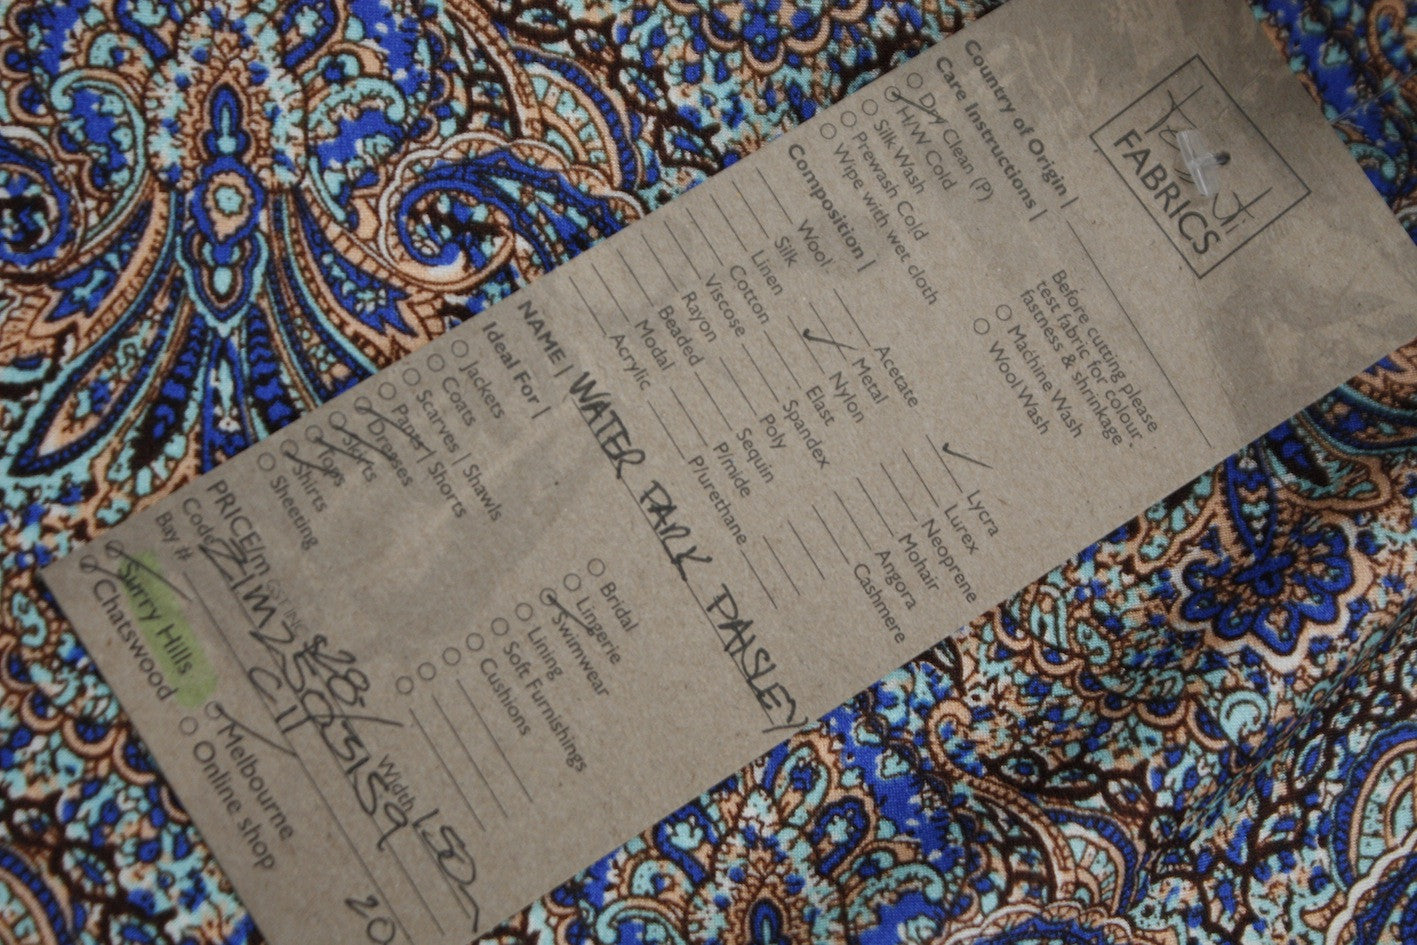 Tessuti
FABRICS
Country of Origin |
Care Instructions |
Dry Clean (P)
H/W Cold
Silk Wash
Prewash Cold
Wipe with wet cloth
Before cutting please
test fabric for colour
fastness & shrinkage.
Machine Wash
Wool Wash
Composition |
Wool
Silk
Linen
Cotton
Viscose
Rayon
Beaded
Modal
Acrylic
Acetate
Metal
Nylon
Elast
Spandex
Poly
Sequin
P/mide
P/urethane
Lycra
Lurex
Neoprene
Mohair
Angora
Cashmere
NAME | WATER PARK PAISLEY
Ideal For |
Jackets
Coats
Scarves | Shawls
Pants | Shorts
Dresses
Skirts
Tops
Shirts
Sheeting
Bridal
Lingerie
Swimwear
Lining
Soft Furnishings
Cushions
PRICE/m GST INC $28/ Width 150
Code
Bay # C11 20
Surry Hills
Chatswood
Melbourne
Online shop